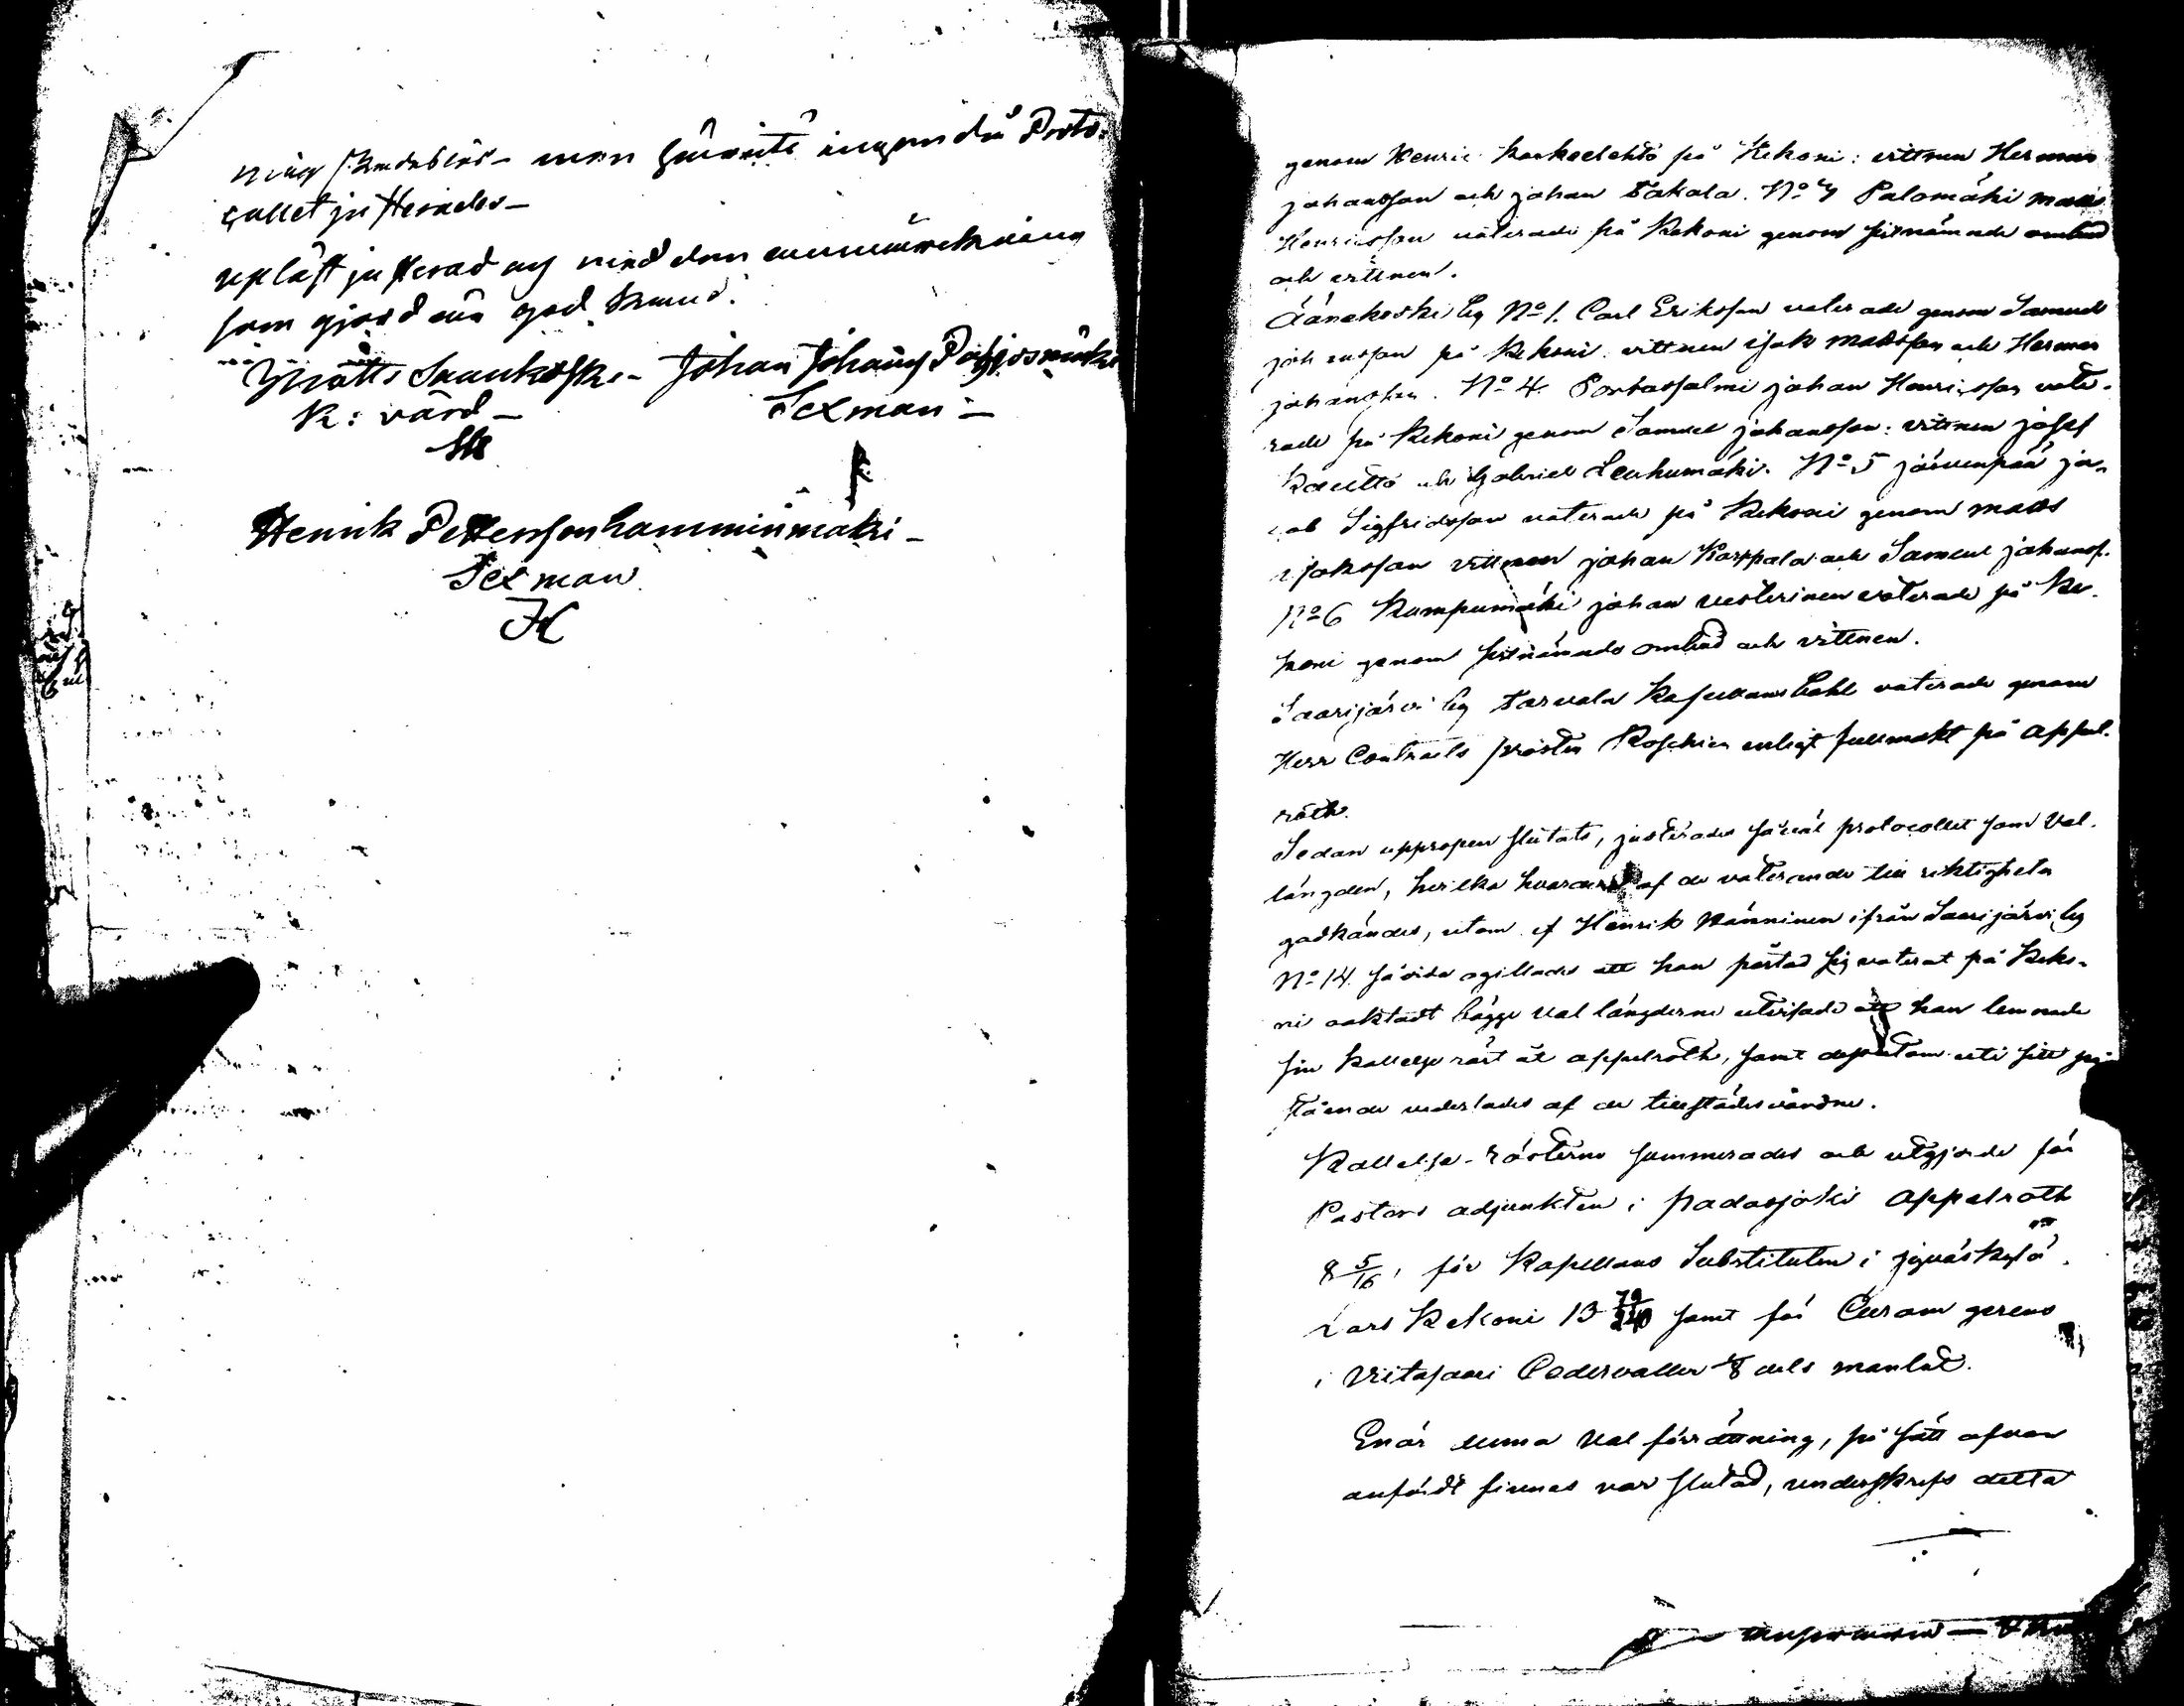 ning men
collet justerades
upläst justerad med den anmärckning
som gjord och god
Matts Saukoski - Johan Johans Pohjosmäki
K: värd - Sexman -
Henrik Pettersson Lamminmäki -
Sexman
genom Henric på Kekoni: vittnen Herman
johansson och johan Takala. No 7 Palomäki mats
Henricsson voterade på Kekoni genom sistnämnde ombud
och vittnen.
Äänekoski by No 1. Carl Eriksson voterade genom Samuel
johansson på Kekoni vittnen isak matsson och Herman
johansson. No 4. johan Henricsson vote-
rade på Kekoni genom Samuel johansson: vittnen josef
Kautto och Gabriel Leuhumäki. No 5 järvenpää ja-
cob Sigfridsson voterade på Kekoni genom mats
isaksson vittnen johan Karppala och Samuel johanss.
No 6 Kumpumäki johan vesterinen voterade på Ke-
koni genom sistnämnde ombud och vittnen.
Saarijärvi by Tarvala Kapellans Bohl voterade genom
Herr Contracts prosten Roschier enligt fullmakt på appel-
roth.
Sedan uppropen slutats, justerades såväl protocollet som Val-
längden, hvilka af de voterande till riktigheten
godkändes, utom af Henrik Vänninen ifrån Saarijärvi by
No 14. såvida ogillades att han påstod sig voterat på Keko-
ni oaktadt bägge Vallängderne utvisade att han lemnade
sin Kallelse röst åt appelroth, samt dessutom uti sitt på-
stående vederlades af de tillstädesvarande.
Kallelse-rösterne summerades och utgjorde för
Pastors adjunkten i padasjoki Appelroth
8 5/16, för Kapellans Substituten i jyväskylä
Lars Kekoni 13 samt för Curam gerens
i Viitasaari Cedervaller dels mantal.
Enär denna Val förrättning, på sätt ofvan
anfördt finnes var slutad, underskrifs detta